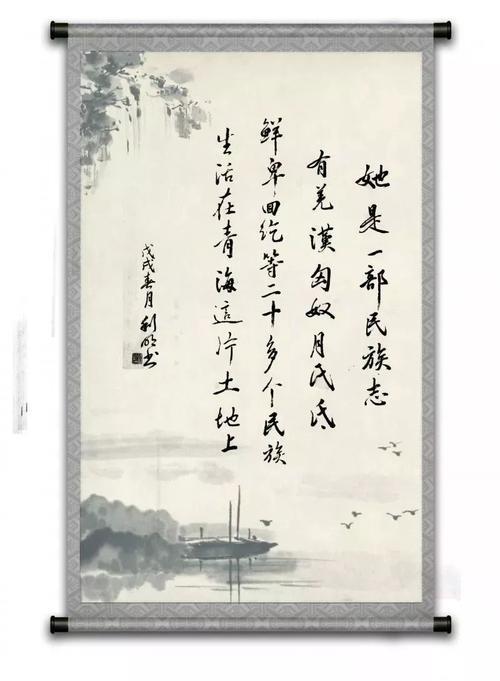 她是一部民族志
有羌漢匈奴月氏氐
鮮卑回紇等二十多个民族
生活在青海這片土地上
戊戌春月利明书